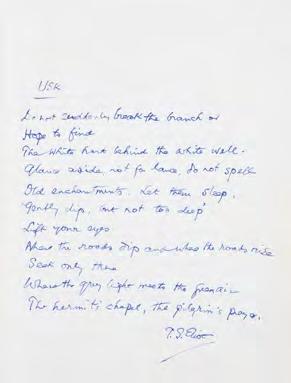 USK
Do not suddenly break the branch or
Hope to find
The white hart behind the white well.
Glance aside, not for lance, do not spell
Old enchantments. Let them sleep.
'Gently dip, but not too deep'
Lift your eyes
Where the roads dip and where the roads rise
Seek only there
Where the grey light meets the green air
The hermit's chapel, the pilgrim's prayer.
T.S. Eliot